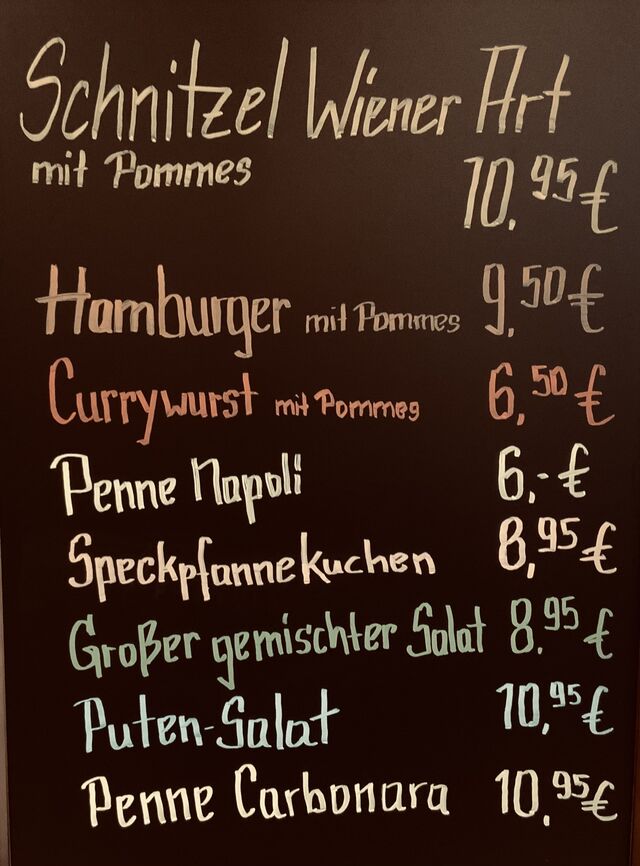 Schnitzel Wiener Art
mit Pommes 10,95€
Hamburger mit Pommes 9,50€
Currywurst mit Pommes 6,50€
Penne Napoli 6,-€
Speckpfannekuchen 8,95€
Großer gemischter Salat 8,95€
Puten-Salat 10,95€
Penne Carbonara 10,95€